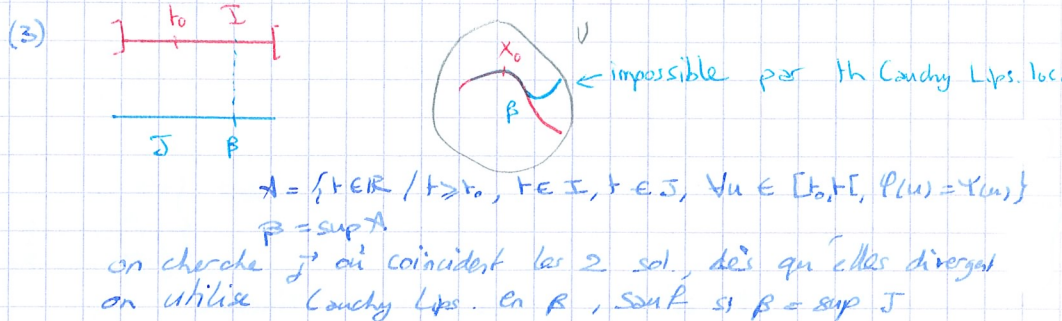 (3)
t₀ I
J β
U
X₀
β
← impossible par th Cauchy Lips. loc.
A = {t ∈ ℝ / t ≥ t₀, t ∈ I, t ∈ J, ∀u ∈ [t₀, t[, φ(u) = Ψ(u)}
β = sup A
on cherche j' où coincident les 2 sol., dès qu'elles divergent
on utilise Cauchy Lips. en β, sauf si β = sup J